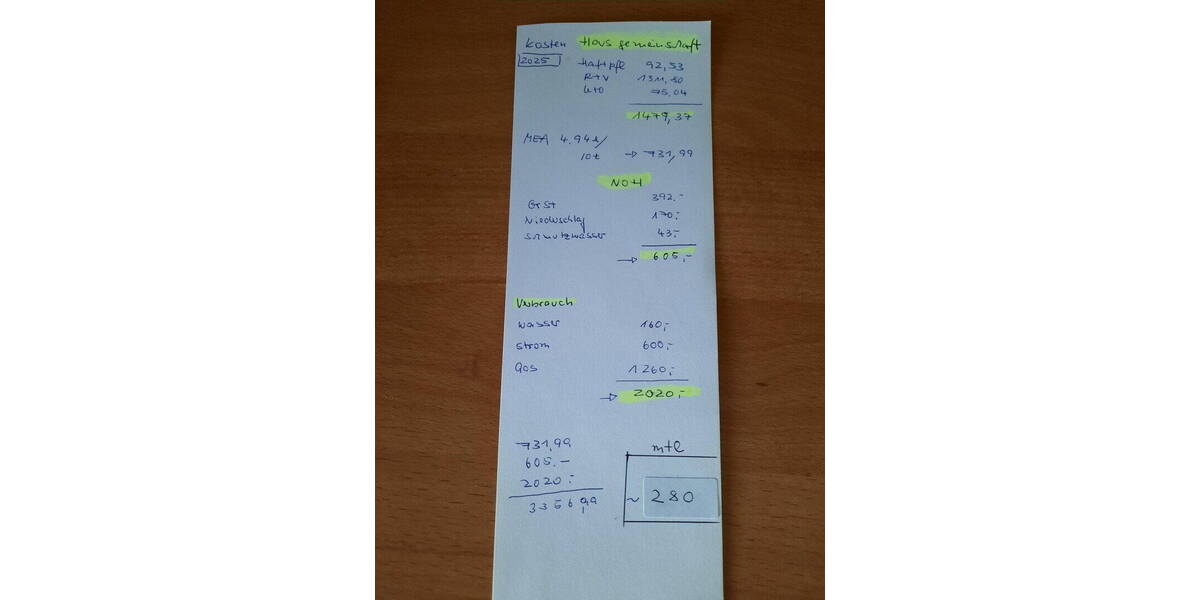 Kosten Hausgemeinschaft
2025
Haftpfl 92,53
R+V 1311,80
75,04
1479,37
MEA 4.948/
10t → 731,99
NOH
GrSt 392.-
Niederschlag 170,-
Schmutzwasser 43,-
→ 605,-
Verbrauch
Wasser 160,-
Strom 600,-
Gas 1260,-
→ 2020,-
731,99
605.-
2020.-
3356,99
mtl
~ 280